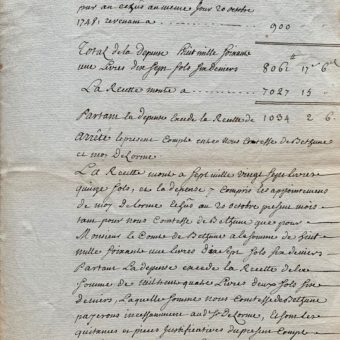 par an echus au meme jour 20 octobre
1748. revenant a 900
Total de la depense huit mille soixante
une Livres dix Sept sols six deniers 8061# 17s 6d
La Recette monte a 7027 15
Partant la depense excede la Recette de 1034 2 6.
Arrêté le present Compte entre Nous Comtesse de Bethune
et moy Delorme
La Recette monte a sept mille vingt sept livres
quinze sols, et la depense y Compris les appointemens
de moy Delorme echus au 20 octobre present mois
tant pour nous Comtesse de Bethune que pour
Monsieur le Comte de Bethune a la somme de huit
mille soixante une livres dix sept sols six deniers
Partant La depense excede la Recette de la
somme de trente quatre Livres deux sols six
deniers, Laquelle somme nous Comtesse de Bethune
payerons incessamment aud. Sr. Delorme,
quitances et pieces Justificatives du present Compte